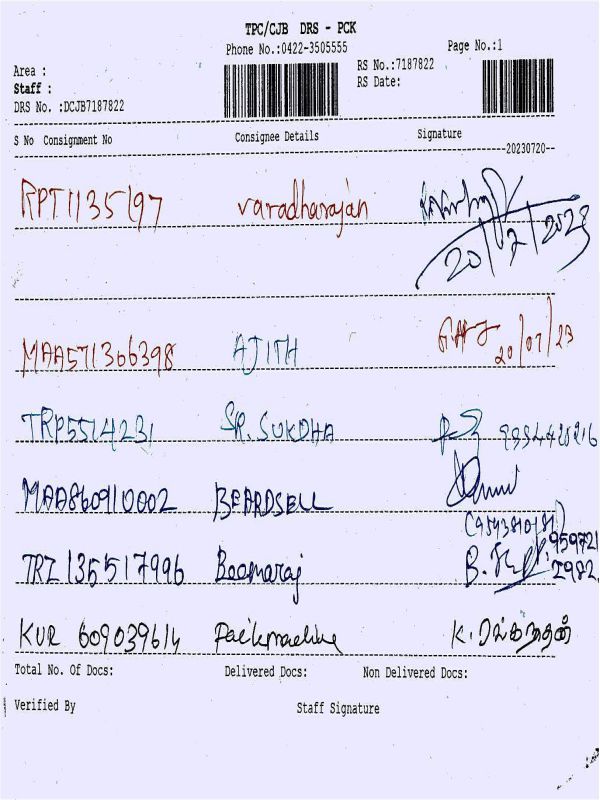 TPC/CJB DRS - PCK
Phone No.:0422-3505555 Page No.:1
Area : RS No.:7187822
Staff : RS Date:
DRS No. :DCJB7187822
S No Consignment No Consignee Details Signature
20230720
RPT1135197 varadharajan
20/7/2023
MAA571366398 AJITH 20/07/23
TRP5514231 SR. SUKDHA
MAA860910002 BEARDSELL
(9543810181)
TRZ 135517996 Beemaraj B. 959721
2982
KUR 609039614 Packmachine K. ரங்கநாதன்
Total No. Of Docs: Delivered Docs: Non Delivered Docs:
Verified By Staff Signature